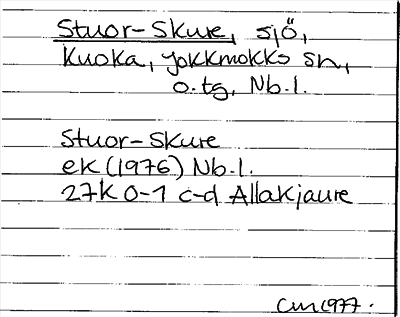 Stuor-Skure, sjö,
Kuoka, Jokkmokks sn,
o. tg, Nb.l.
Stuor-Skure
ek (1976) Nb.l.
27K 0-1 c-d Allakjaure
CM 1977.